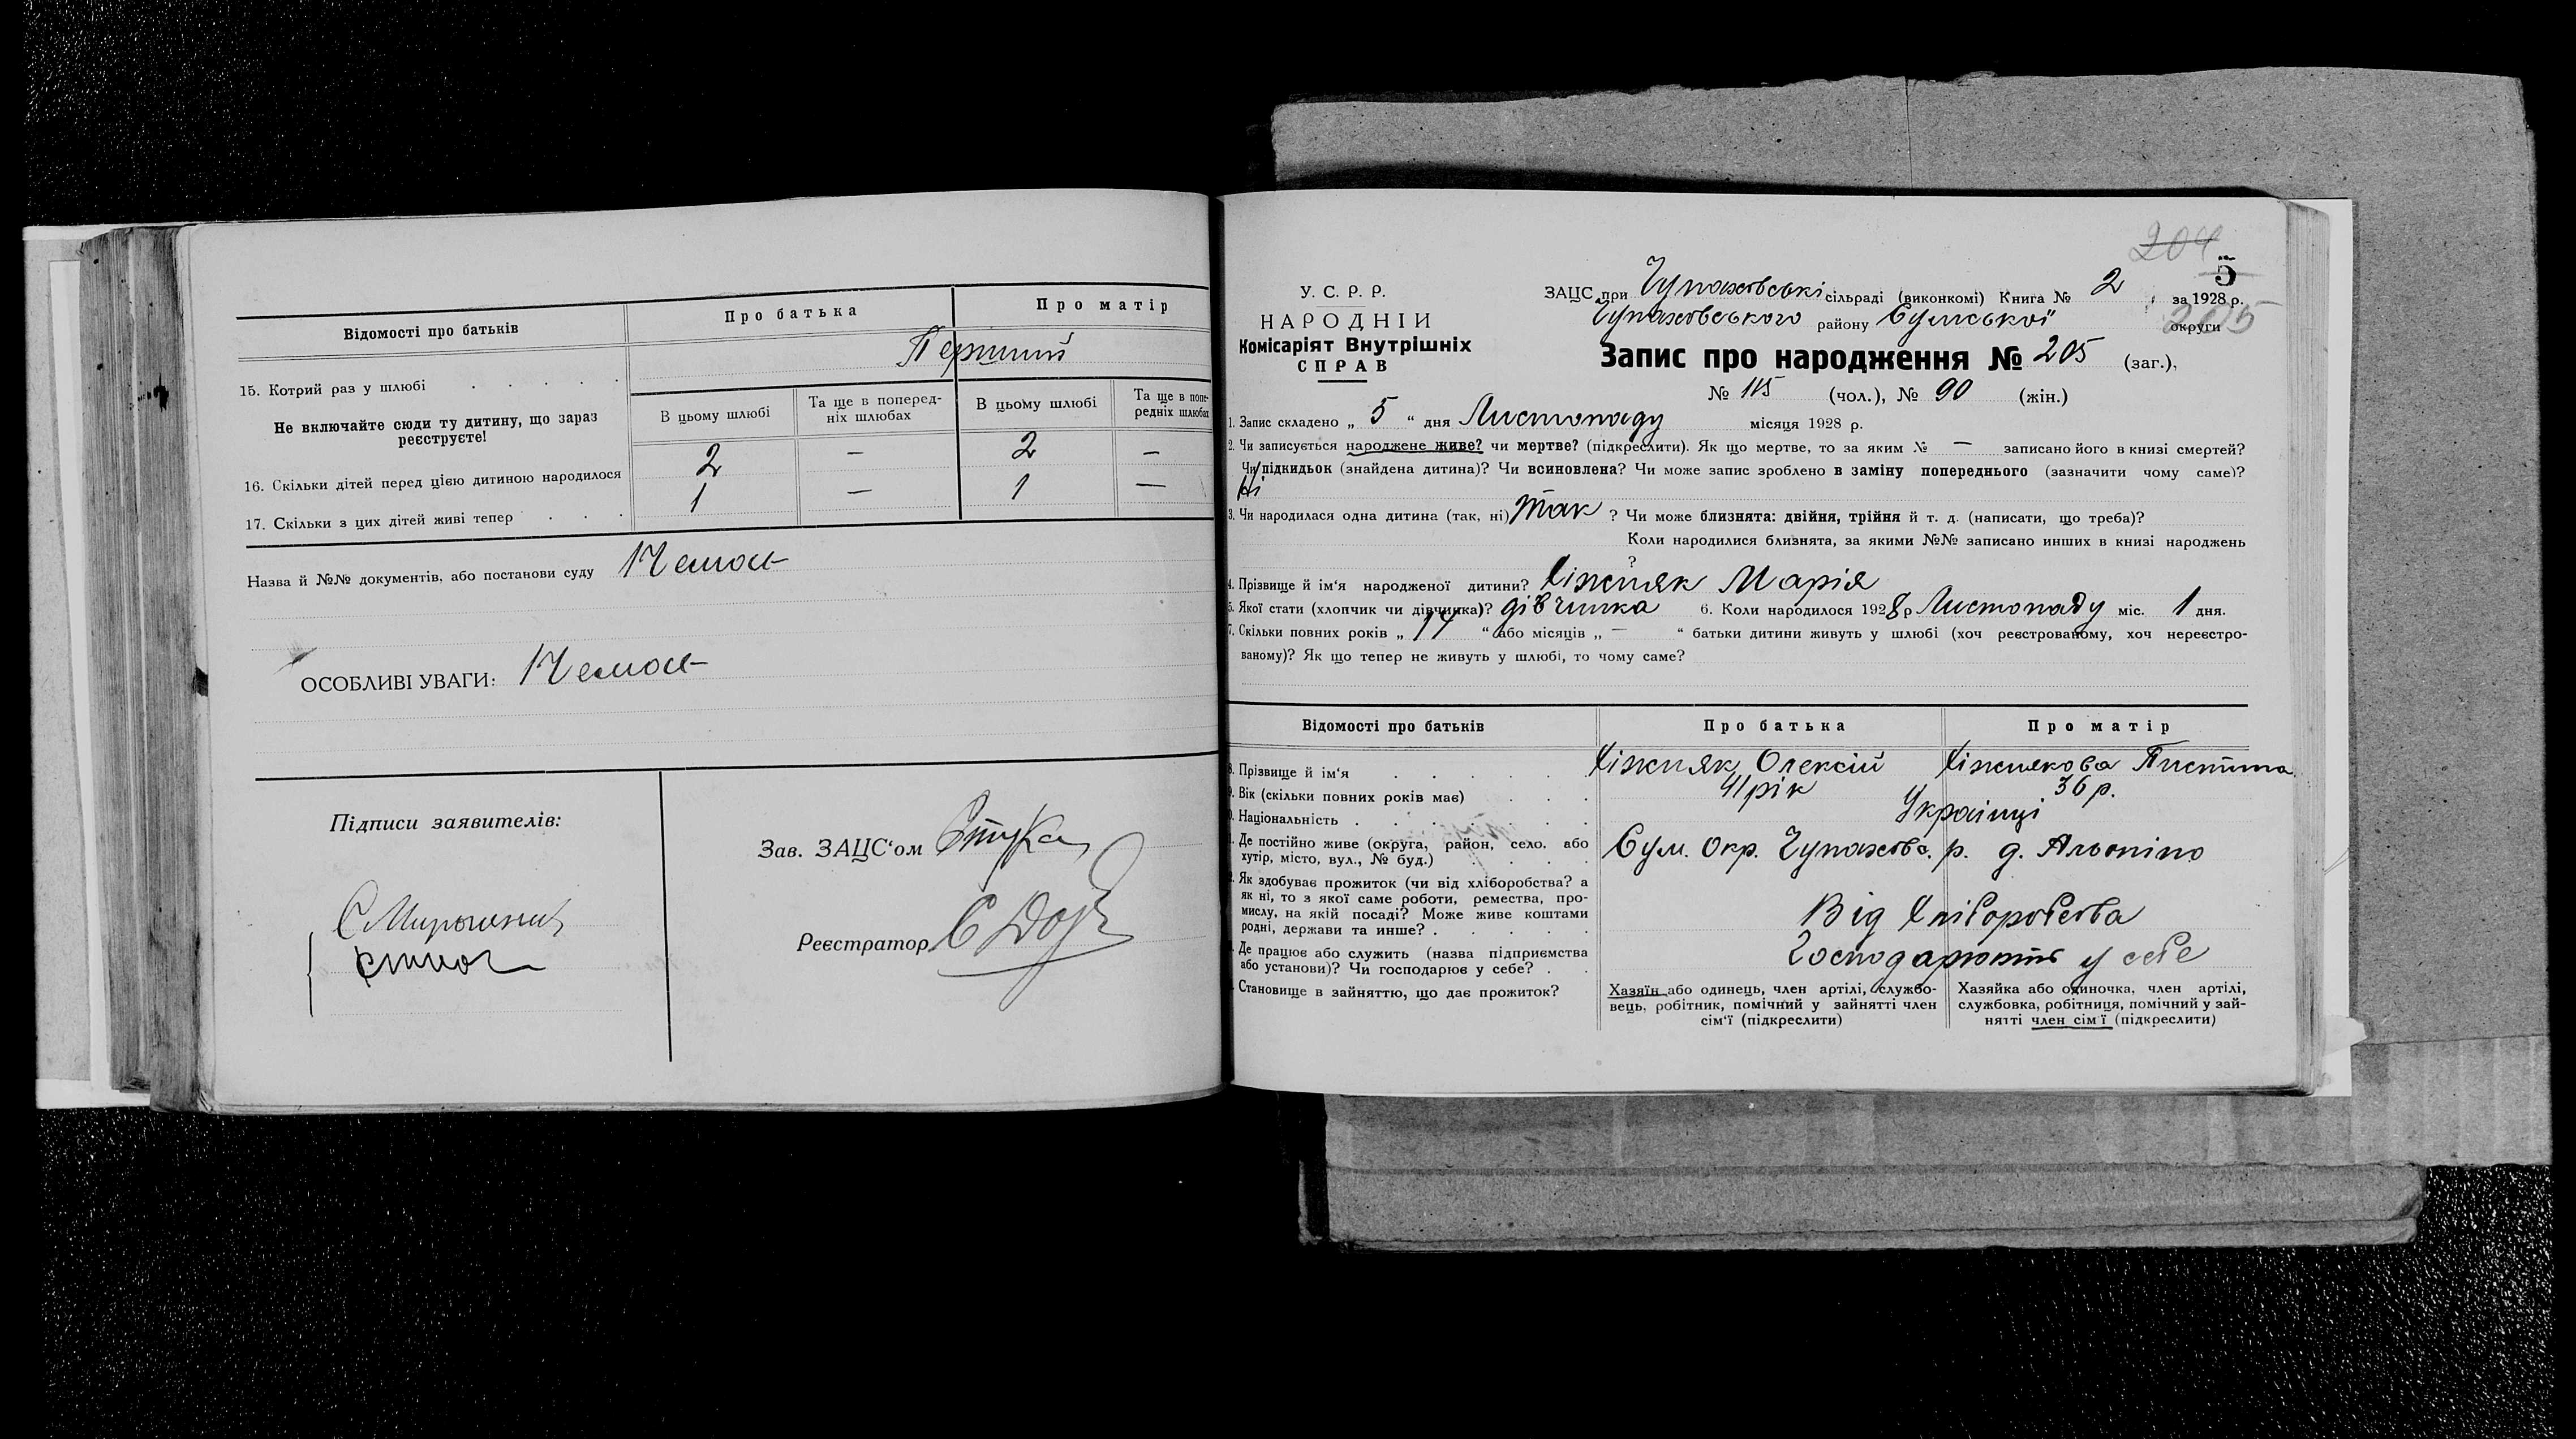 Відомості про батьків
Про батька
Про матір
15. Котрий раз у шлюбі
Перший
Не включайте сюди ту дитину, що зараз
реєструєте!
В цьому шлюбі
Та ще в поперед-
ніх шлюбах
В цьому шлюбі
Та ще в попе-
редніх шлюбах
16. Скільки дітей перед цією дитиною народилося
2 — 2 —
17. Скільки з цих дітей живі тепер
1 — 1 —
Назва й №№ документів, або постанови суду
Немає
ОСОБЛИВІ УВАГИ: Немає
Підписи заявителів:
Зав. ЗАЦС'ом
Реєстратор
204
5
205
У. С. Р. Р.
НАРОДНІЙ
Комісаріят Внутрішніх
СПРАВ
ЗАЦС при Чупахівські сільраді (виконкомі) Книга № 2 за 1928 р.
Чупахівського району Сумської округи
Запис про народження № 205 (заг.),
№ 115 (чол.), № 90 (жін.)
1. Запис складено „ 5 “ дня Листопаду місяця 1928 р.
2. Чи записується народжене живе? чи мертве? (підкреслити). Як що мертве, то за яким № — записано його в книзі смертей?
Чи підкидьок (знайдена дитина)? Чи всиновлена? Чи може запис зроблено в заміну попереднього (зазначити чому саме)?
Ні
3. Чи народилася одна дитина (так, ні) Так ? Чи може близнята: двійня, трійня й т. д. (написати, що треба)?
Коли народилися близнята, за якими №№ записано инших в книзі народжень
?
4. Прізвище й ім'я народженої дитини? Хіжняк Марія
5. Якої стати (хлопчик чи дівчинка)? дівчинка 6. Коли народилося 1928 р Листопаду міс. 1 дня.
7. Скільки повних років „ 14 “ або місяців „ — “ батьки дитини живуть у шлюбі (хоч реєстрованому, хоч нереєстро-
ваному)? Як що тепер не живуть у шлюбі, то чому саме?
Відомості про батьків
Про батька
Про матір
8. Прізвище й ім'я
Хіжняк Олексій
Хіжнякова
9. Вік (скільки повних років має)
41 рік
36 р.
0. Національність
Українці
1. Де постійно живе (округа, район, село. або
хутір, місто, вул., № буд.)
Сум. Окр. Чупахівс. р.
2. Як здобуває прожиток (чи від хліборобства? а
як ні, то з якої саме роботи, ремества, про-
мислу, на якій посаді? Може живе коштами
родні, держави та инше?
Від Хліборобства
Де працює або служить (назва підприємства
або установи)? Чи господарює у себе?
Господарюють у себе
Становище в зайняттю, що дає прожиток?
Хазяїн або одинець, член артілі, службо-
вець, робітник, помічний у зайнятті член
сім'ї (підкреслити)
Хазяйка або одиночка, член артілі,
службовка, робітниця, помічний у зай-
нятті член сім'ї (підкреслити)